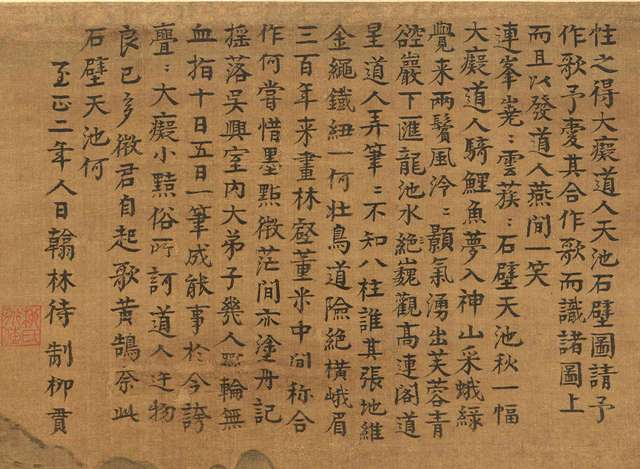 性之得大癡道人天池石壁圖請予
作歌予愛其合作歌而識諸圖上
而且以發道人燕間一笑
連峯峩〻雲蔟〻石壁天池秋一幅
大癡道人騎鯉魚夢入神山采蛾緑
覺來兩鬢風泠〻顥氣湧出芙蓉青
硿巖下匯龍池水絶巍觀髙連閣道
呈道人弄筆〻不知八柱誰其張地維
金繩鐵紐一何壯鳥道險絶横峨眉
三百年來畫林壑董米中間称合
作何嘗惜墨點微茫間亦塗丹記
揺落吳興室内大弟子幾人斲輪無
血指十日五日一筆成能事於今誇
亹〻大癡小黠俗所訶道人迕物
良已多微君自起歌黄鵠奈此
石壁天池何
至正二年人日翰林待制柳貫